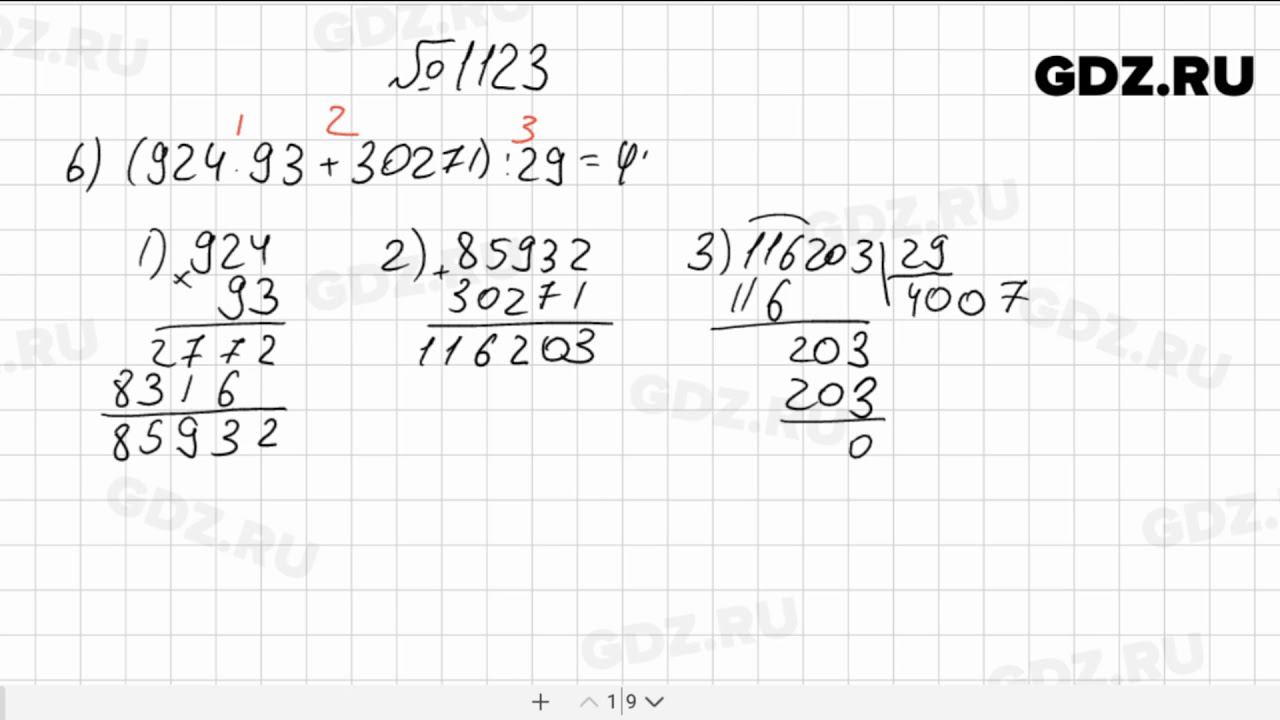 №1123
GDZ.RU
1 2 3
б) (924·93+30271):29=4
1) 924
× 93
2772
8316
85932
2) +85932
30271
116203
3) 116203 | 29
116 4007
203
203
0
1 9
GDZ.RU
GDZ.RU
GDZ.RU
GDZ.RU
GDZ.RU
GDZ.RU
GDZ.RU
GDZ.RU
GDZ.RU
GDZ.RU
GDZ.RU